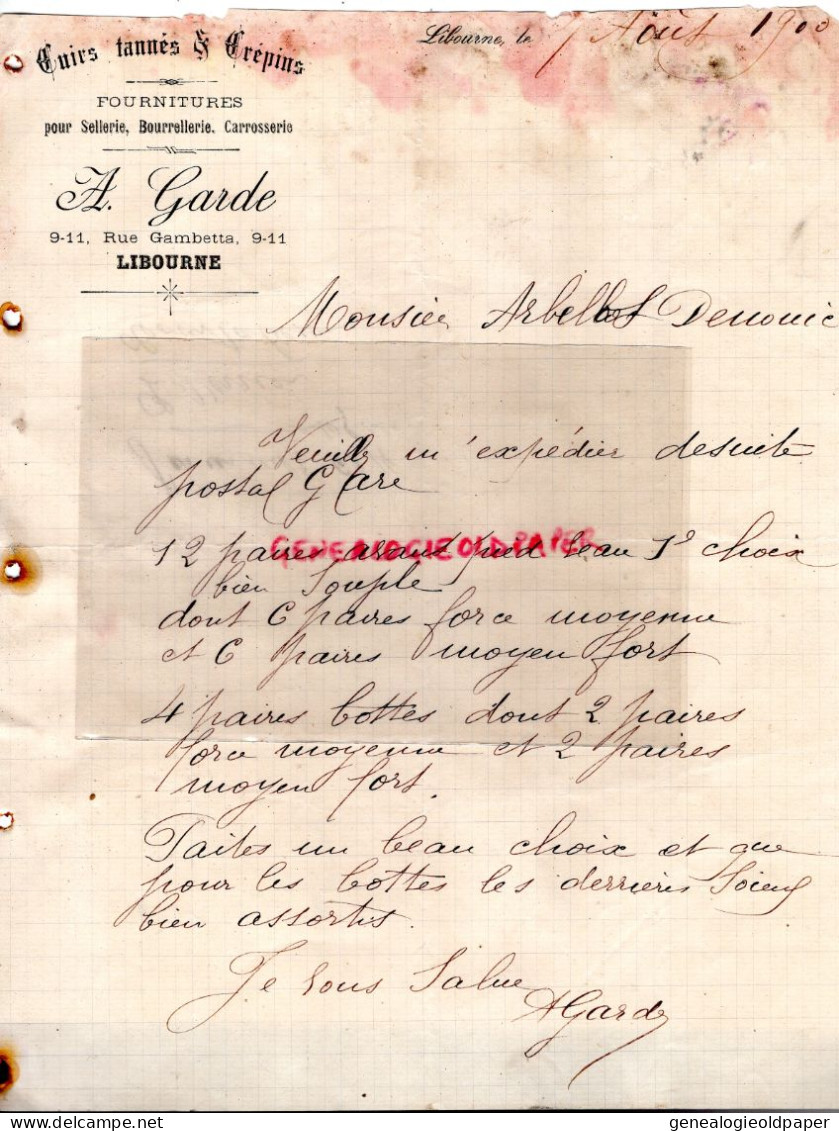 Cuirs tannés & Crépins
FOURNITURES
pour Sellerie, Bourrellerie, Carrosserie
A. Garde
9-11, Rue Gambetta, 9-11
LIBOURNE
Libourne, le 7 Août 1900
Monsieur Arbellot Denouic
Veuillez m'expédier desuite
postal Gare
12 paires avant pied beau 1er choix
bien souple
dont 6 paires force moyenne
et 6 paires moyen fort
GENEALOGIEOLDPAPER
4 paires bottes dont 2 paires
force moyenne et 2 paires
moyen fort.
Faites un beau choix et que
pour les bottes les derrieres soient
bien assortis.
Je vous salue
AGarde
genealogieoldpaper